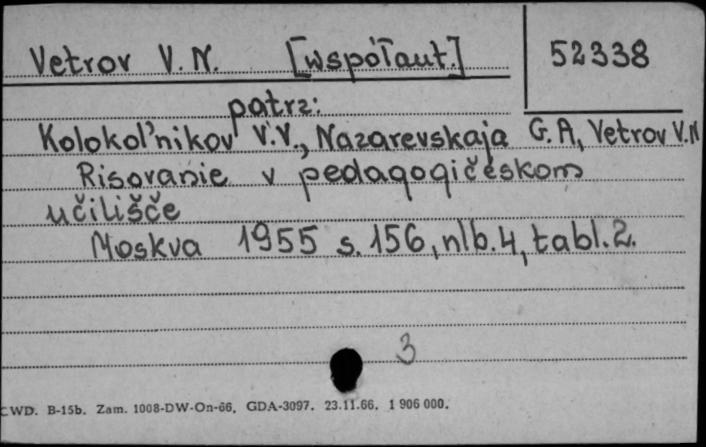 Vetrov V.N. [współaut.] 52338
patrz:
Kolokol'nikov V.V., Nazarevskaja G.A, Vetrov V.N
Risovanie v pedagogičeskom
učilišče
Moskva 1955 s. 156, nlb. 4, tabl. 2.
3
CWD. B-15b. Zam. 1008-DW-On-66. GDA-3097. 23.11.66. 1 906 000.